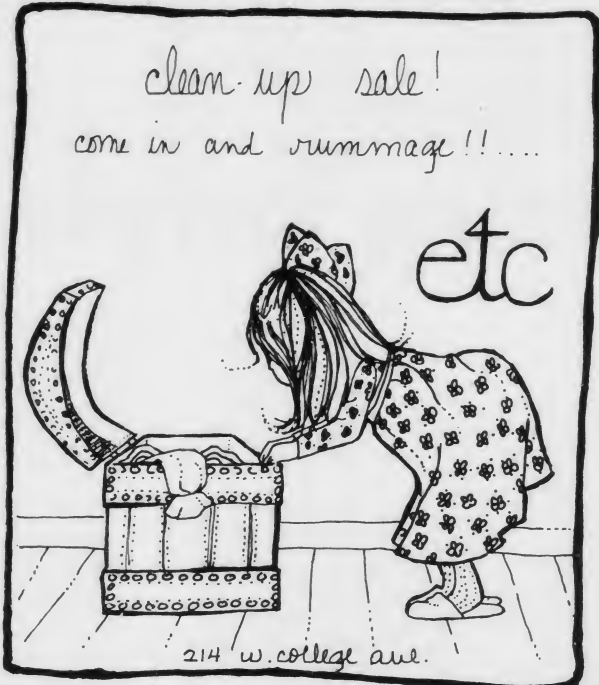 clean-up sale!
come in and rummage!!....
etc
214 w. college ave.